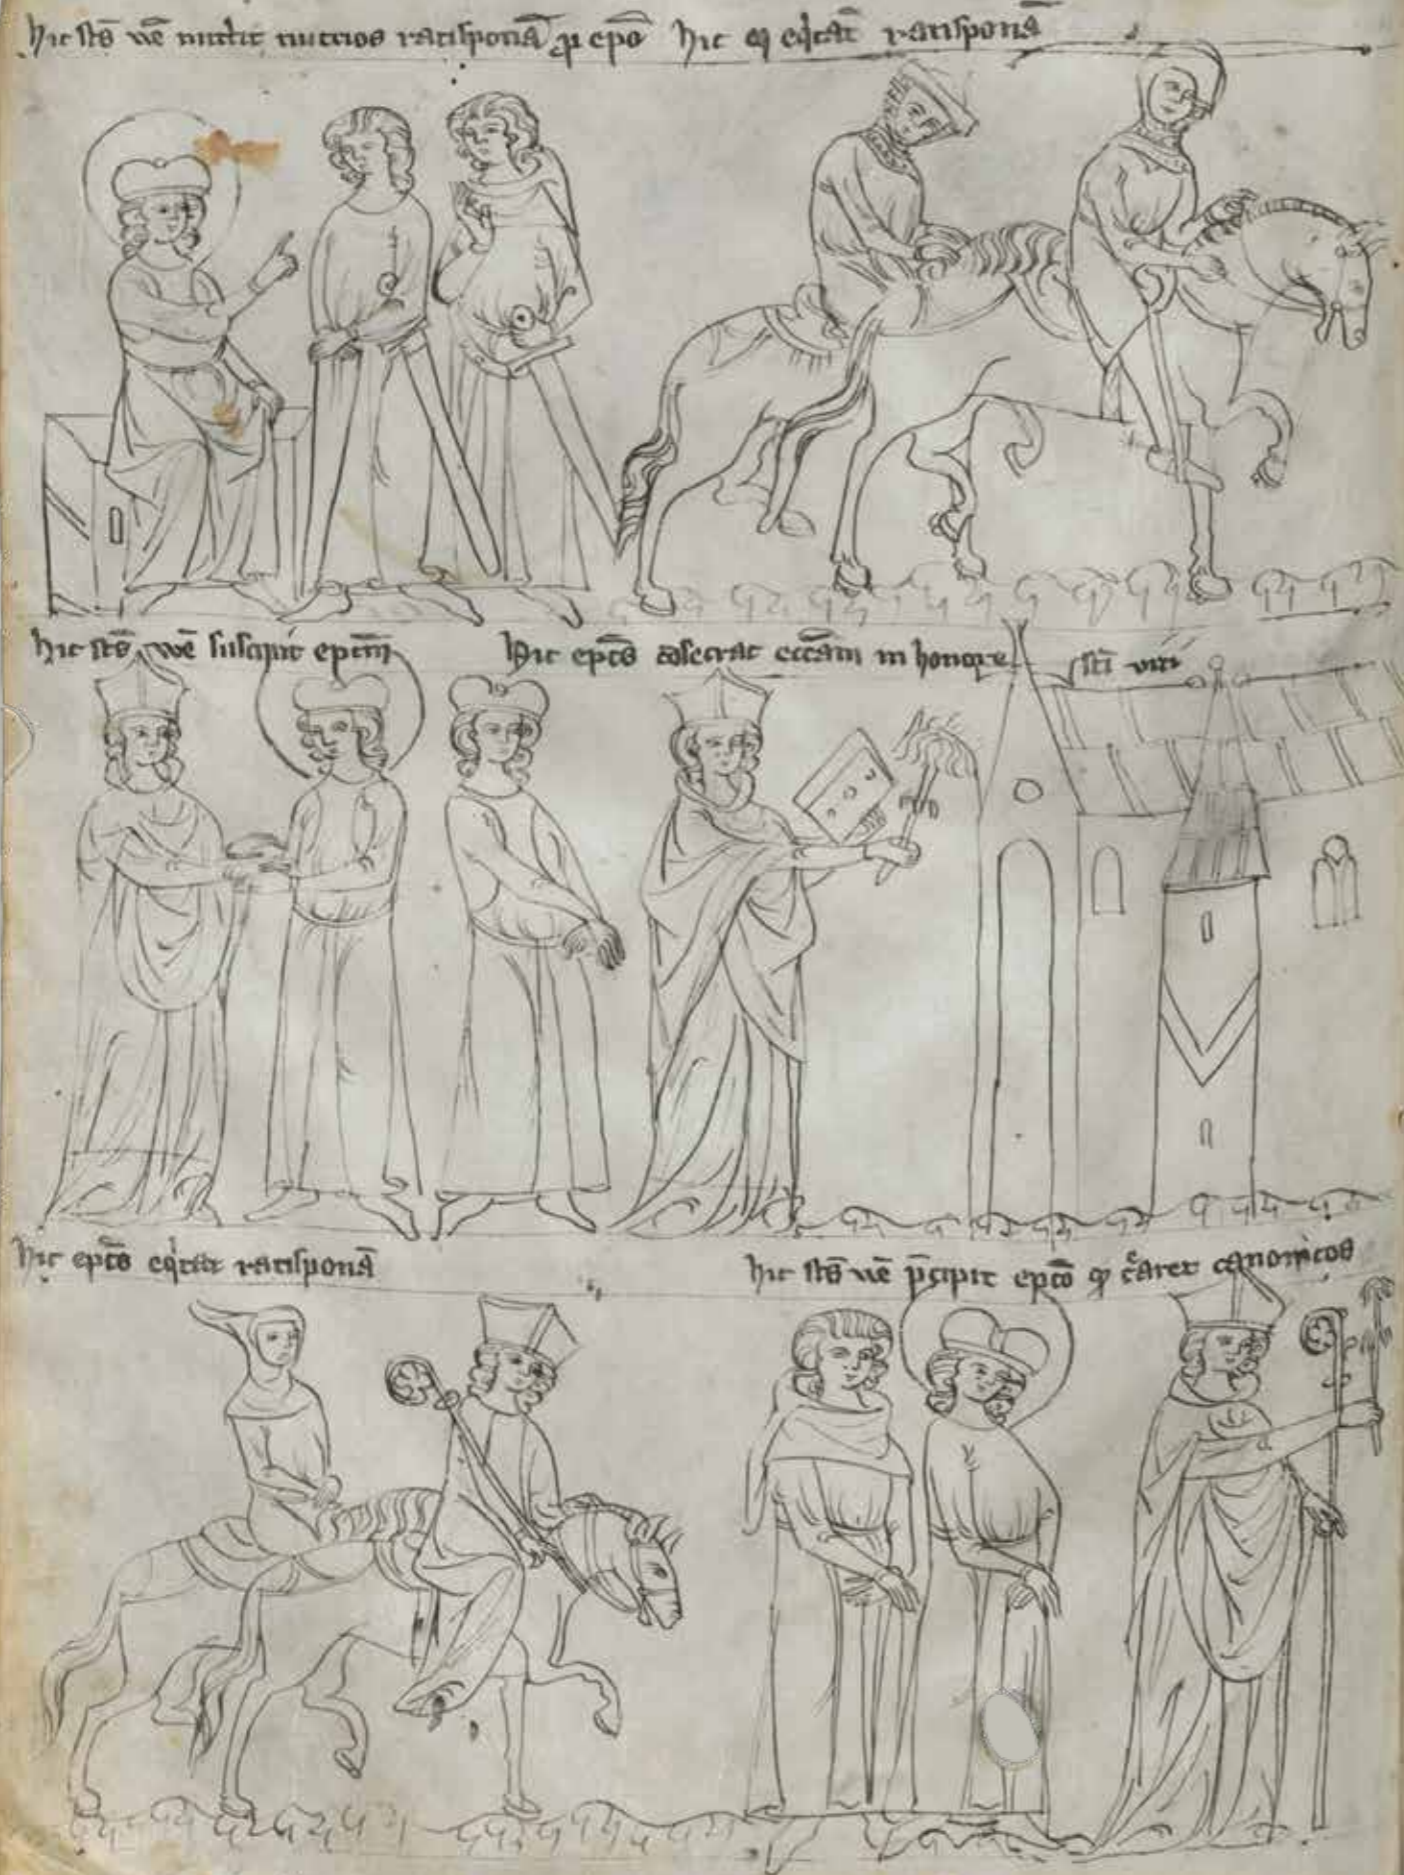 hic scs̄ wē mittit nuccios ratisponā ꝓ epō hic eq̇tāt ratisponā
hic scs̄ wē suscipit epm̄ hic epc̄s ꝯsecrat eccām in honore sc̄i viti
hic epc̄s eq̇tat ratisponā hic scs̄ wē p̄cipit epc̄o canonicos